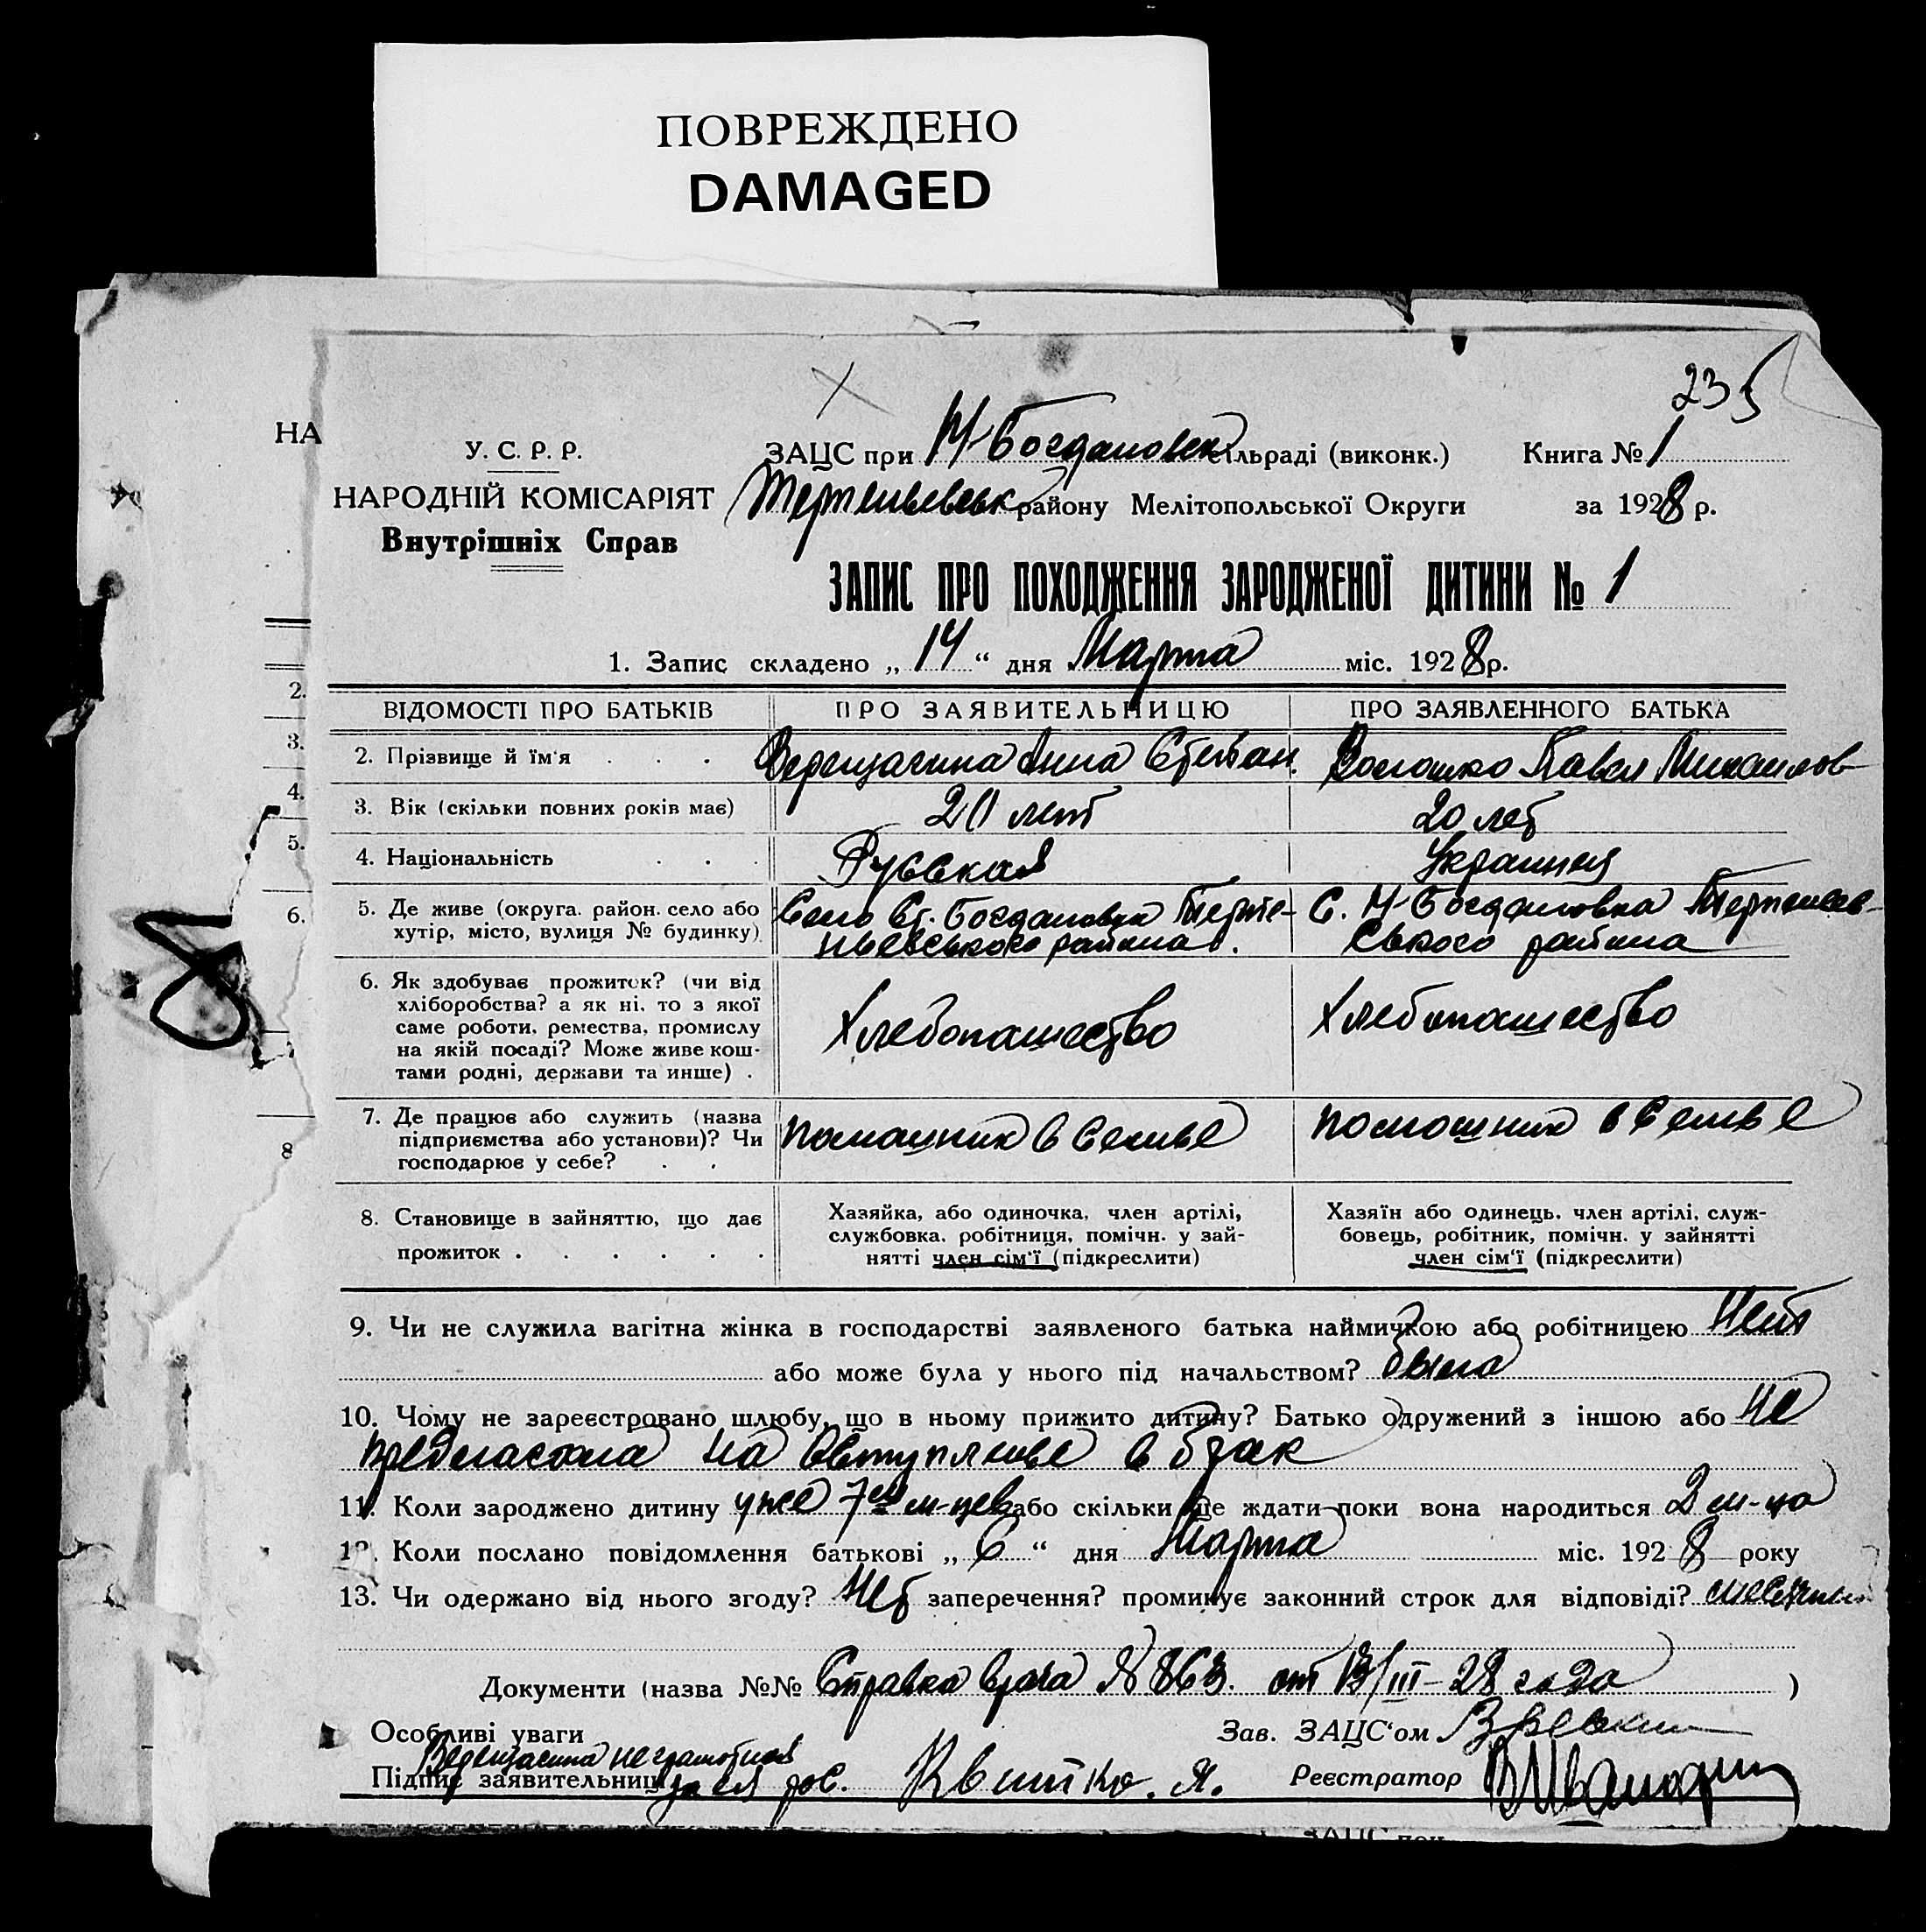 ПОВРЕЖДЕНО
DAMAGED
235
НА
У. С. Р. Р.
НАРОДНІЙ КОМІСАРІЯТ
Внутрішніх Справ
ЗАЦС при Н-Богдановск сільраді (виконк.) Книга № 1
району Мелітопольської Округи за 1928 р.
ЗАПИС ПРО ПОХОДЖЕННЯ ЗАРОДЖЕНОЇ ДИТИНИ № 1
1. Запис складено „ 14 “ дня Марта міс. 1928 р.
ВІДОМОСТІ ПРО БАТЬКІВ ПРО ЗАЯВИТЕЛЬНИЦЮ ПРО ЗАЯВЛЕННОГО БАТЬКА
2. Прізвище й їм'я . . . Верещагина Анна Степан. Волошко Павел Михаилов
3. Вік (скільки повних років має) 20 лет 20 лет
4. Національність . . . Русская Украинец
5. Де живе (округа. район. село або Село Ст. Богдановка Терпе- С. Н-Богдановка
хутір, місто, вулиця № будинку) ньевського района. ського района
6. Як здобуває прожиток? (чи від
хліборобства? а як ні, то з якої
саме роботи, ремества, промислу Хлебопашество Хлебопашество
на якій посаді? Може живе кош-
тами родні, держави та инше) .
7. Де працює або служить (назва
підприємства або установи)? Чи помошник в семье помошник в семье
господарює у себе? . .
8. Становище в зайняттю, що дає
прожиток . . . . . .
Хазяйка, або одиночка, член артілі,
службовка, робітниця, помічн. у зай-
нятті член сім'ї (підкреслити)
Хазяїн або одинець, член артілі, служ-
бовець, робітник, помічн. у зайнятті
член сім'ї (підкреслити)
9. Чи не служила вагітна жінка в господарстві заявленого батька наймичкою або робітницею Нет
або може була у нього під начальством? была
10. Чому не зареєстровано шлюбу, що в ньому прижито дитину? Батько одружений з іншою або не
на в брак
11. Коли зароджено дитину уже 7 м-цев або скільки ще ждати поки вона народиться 2 м-ца
12. Коли послано повідомлення батькові „ 6 “ дня Марта міс. 1928 року
13. Чи одержано від нього згоду? Нет заперечення? проминує законний строк для відповіді?
Документи (назва №№ Справка врача № 863. от 13/III-28 года )
Особливі уваги Зав. ЗАЦС'ом
Верещагина неграмотная
Підпис заявительниці за ея рос. Квитко. Я. Реєстратор
2.
3.
4.
5.
6.
8
ЗАЦС при